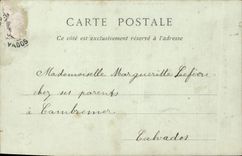 CARTE POSTALE
Ce côté est exclusivement réservé à l'adresse
Mademoiselle Marguerite Lefèvre
chez ses parents
à Cambremer
Calvados